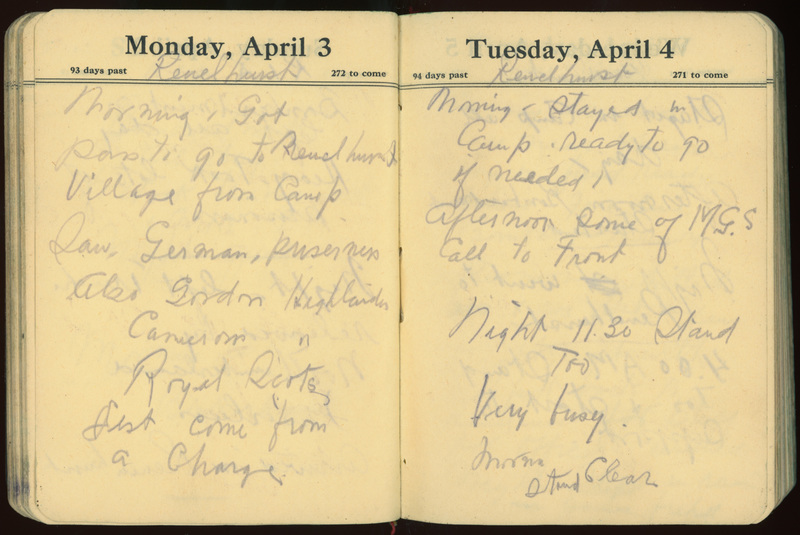 Monday, April 3
93 days past
272 to come
Renelhurst
Morning, Got
pass to go to Renelhurst
Village from Camp
Saw, German, priserners
Also Gordon Highlander
Camerons n
Royal Scots,
Jest come from
a Charge.
Tuesday, April 4
94 days past
271 to come
Renelhurst
Morning - stayed in
Camp. ready to go
if needed
Afternoon some of M.G.S
Call to Front
Night 11.30 Stand
Too
Very busy.
Stand Clear